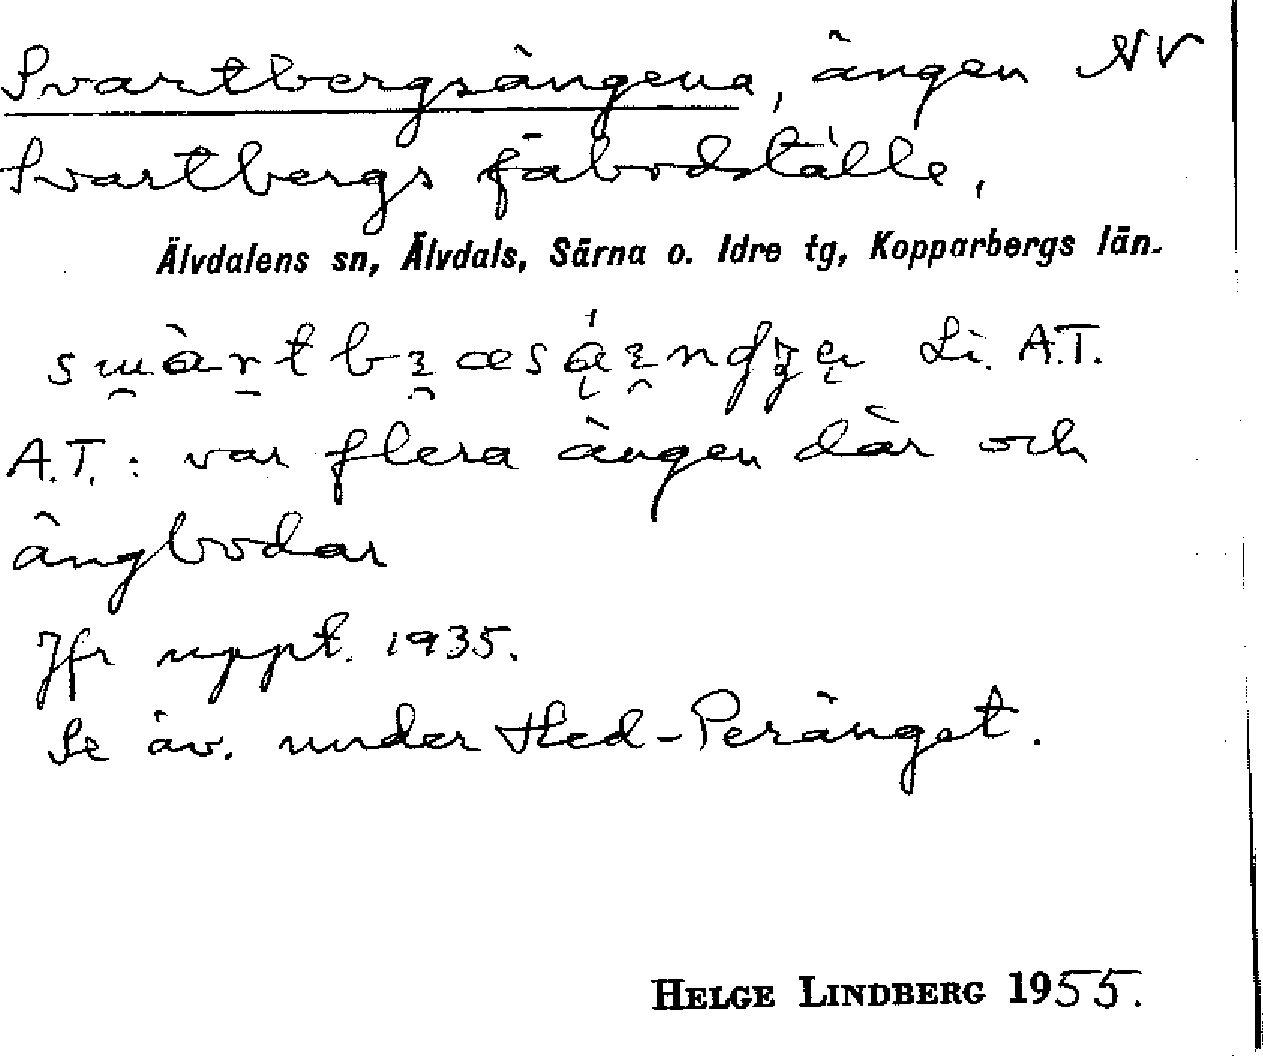 Svartbergsängena, ängen NV
Svartbergs fäbodställe,
Älvdalens sn, Älvdals, Särna o. Idre tg, Kopparbergs län.
Li. A.T.
A.T.: var flera ängen där och
ängbodar
Jfr uppt. 1935.
Se äv. under Hed-Peränget.
HELGE LINDBERG 1955.